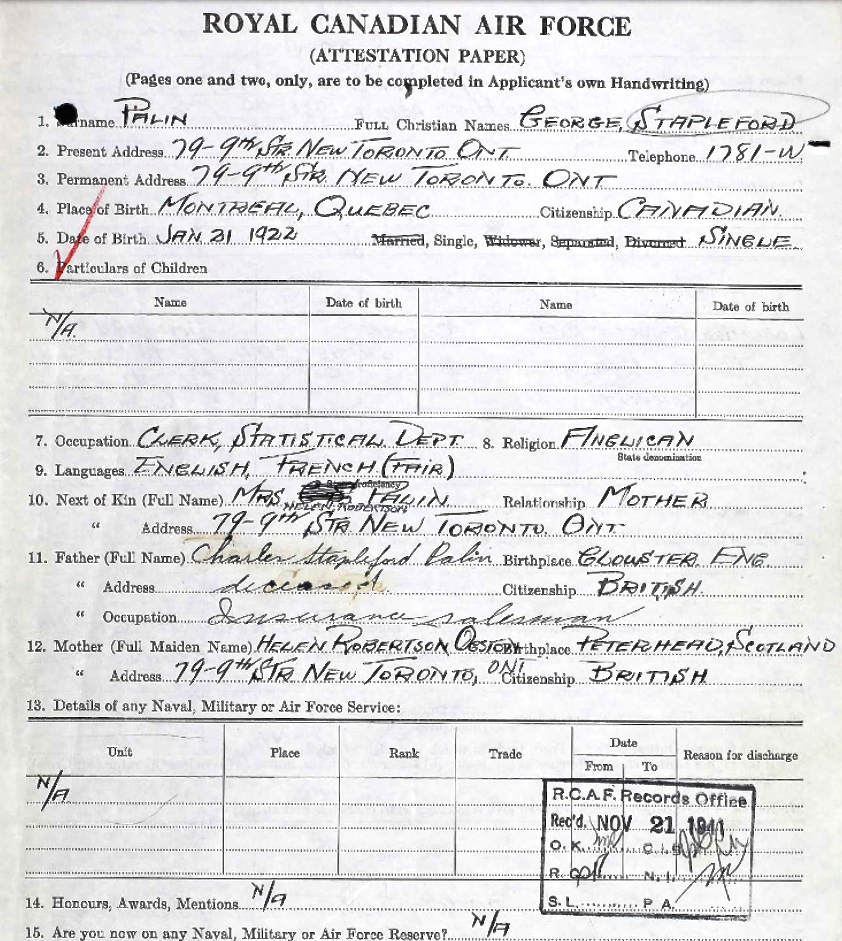 ROYAL CANADIAN AIR FORCE
(ATTESTATION PAPER)
(Pages one and two, only, are to be completed in Applicant's own Handwriting)
1. Surname PALIN FULL Christian Names GEORGE, STAPLEFORD
2. Present Address 79-9TH STR NEW TORONTO. ONT. Telephone 1781-W
3. Permanent Address 79-9TH STR. NEW TORONTO. ONT
4. Place of Birth MONTREAL, QUEBEC Citizenship CANADIAN.
5. Date of Birth JAN 21 1922 Married, Single, Widower, Separated, Divorced SINGLE
6. Particulars of Children
Name Date of birth Name Date of birth
N/A.
7. Occupation CLERK, STATISTICAL DEPT 8. Religion ANGLICAN
State denomination
9. Languages ENGLISH, FRENCH (FAIR)
proficiency
10. Next of Kin (Full Name) MRS. PALIN Relationship MOTHER
HELEN ROBERTSON
" Address 79-9TH STR NEW TORONTO. ONT
11. Father (Full Name) Charles Stapleford Palin Birthplace GLOUSTER. ENG
" Address deceased Citizenship BRITISH.
" Occupation Insurance salesman
12. Mother (Full Maiden Name) HELEN ROBERTSON Birthplace PETERHEAD, SCOTLAND
" Address 79-9TH STR NEW TORONTO, ONT Citizenship BRITISH
13. Details of any Naval, Military or Air Force Service:
Unit Place Rank Trade Date Reason for discharge
From To
N/A
R.C.A.F. Records Office
Rec'd. NOV 21 1941
O.K. C.I.S.
R. N.I.
S.L. P.A.
14. Honours, Awards, Mentions N/A
15. Are you now on any Naval, Military or Air Force Reserve? N/A